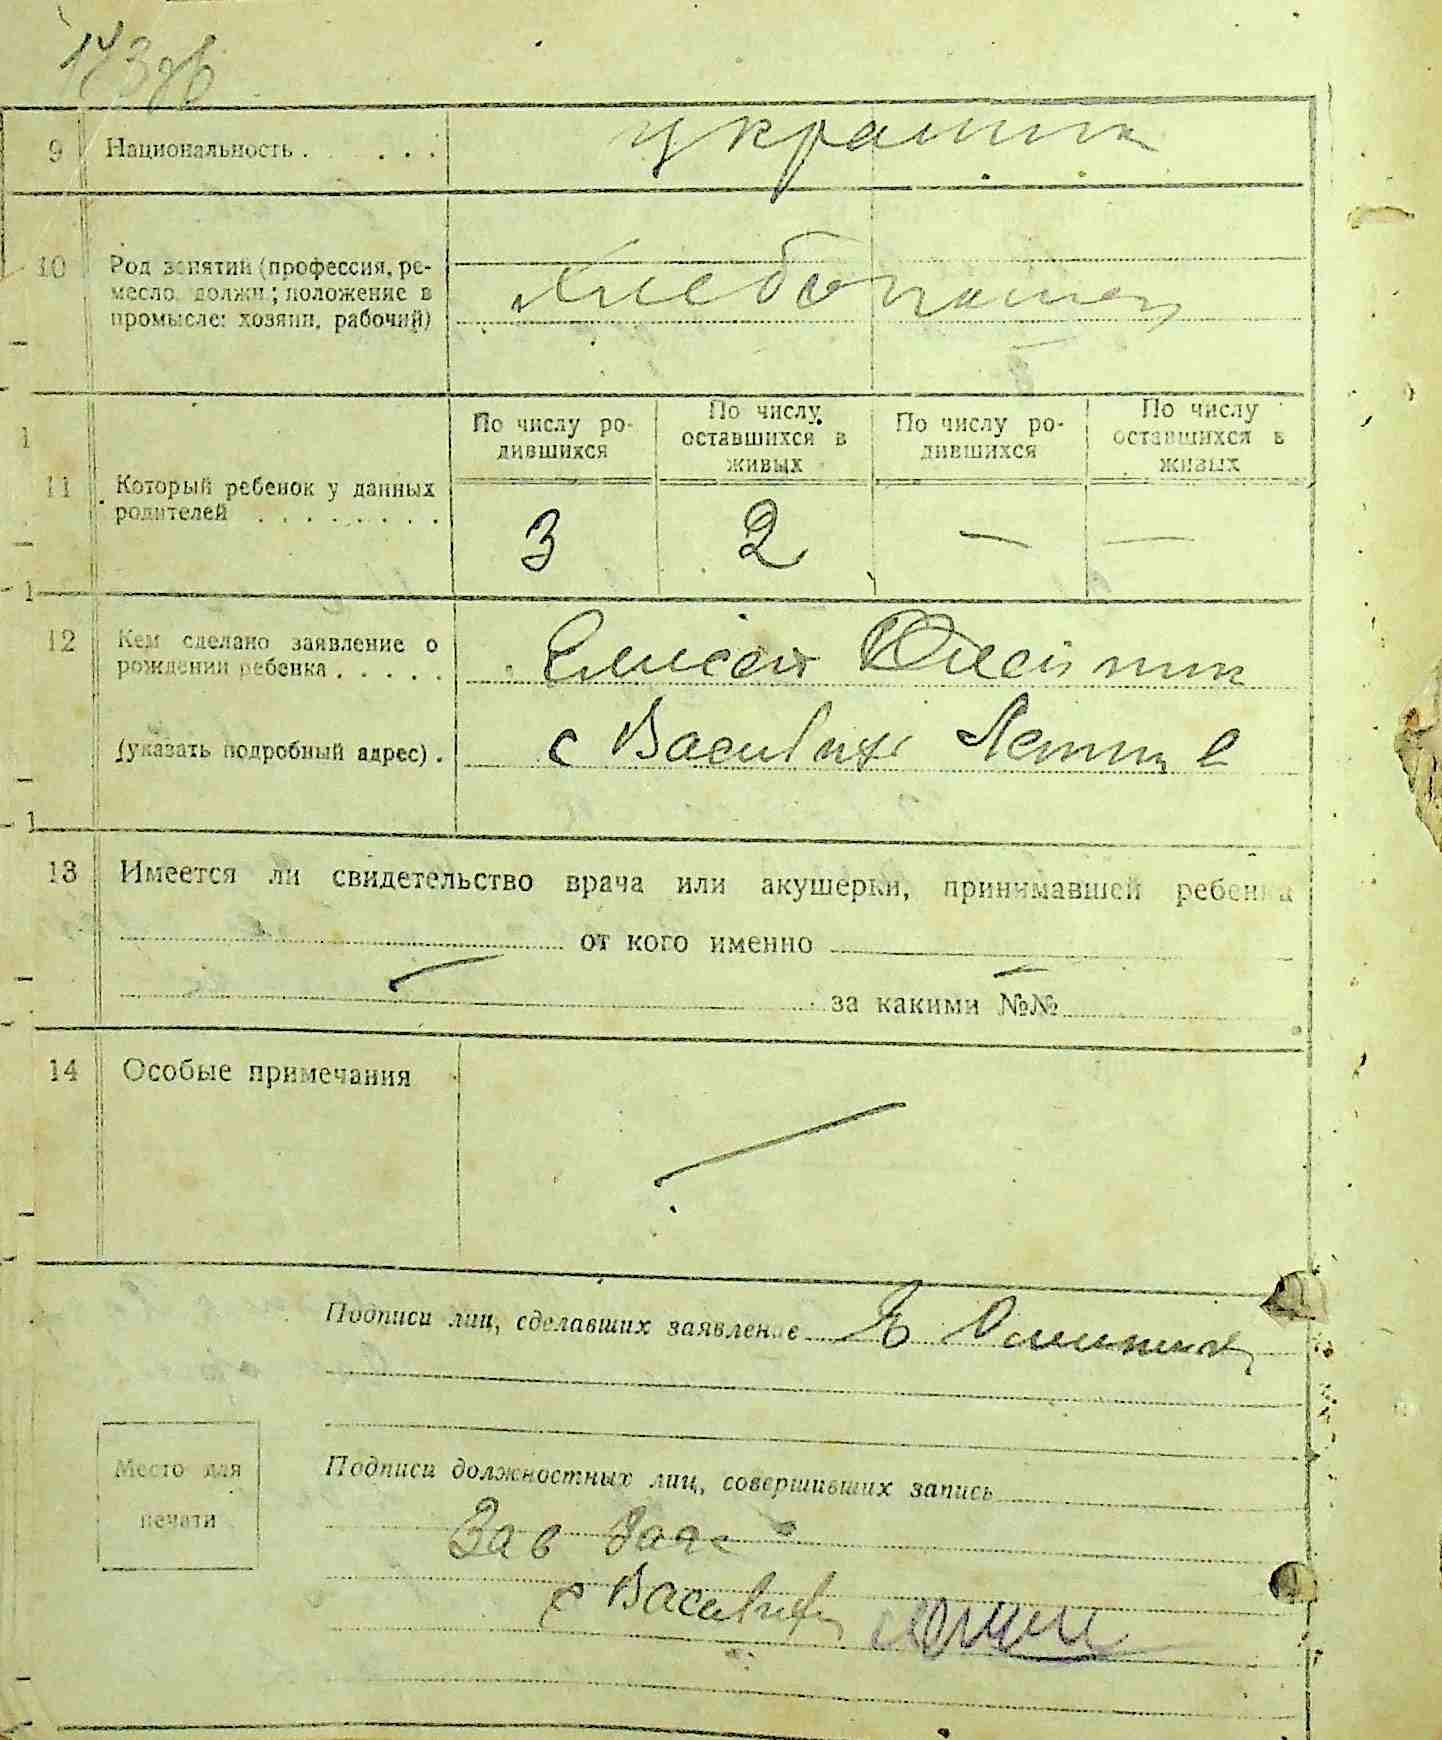 9 Национальность . . . . . украинк
10 Род занятий (профессия, ре-
месло, должн.; положение в
промысле: хозяин, рабочий)
Хлебопашец
По числу ро-
дившихся
По числу
оставшихся в
живых
По числу ро-
дившихся
По числу
оставшихся в
живых
11 Который ребенок у данных
родителей . . . . . . . .
3 2 — —
12 Кем сделано заявление о
рождении ребенка . . . . .
Елисей
(указать подробный адрес) .
с
13 Имеется ли свидетельство врача или акушерки, принимавшей ребенка
от кого именно
за какими №№
14 Особые примечания
Подписи лиц, сделавших заявление Е
Место для
печати
Подписи должностных лиц, совершивших запись
Зав Загс
с